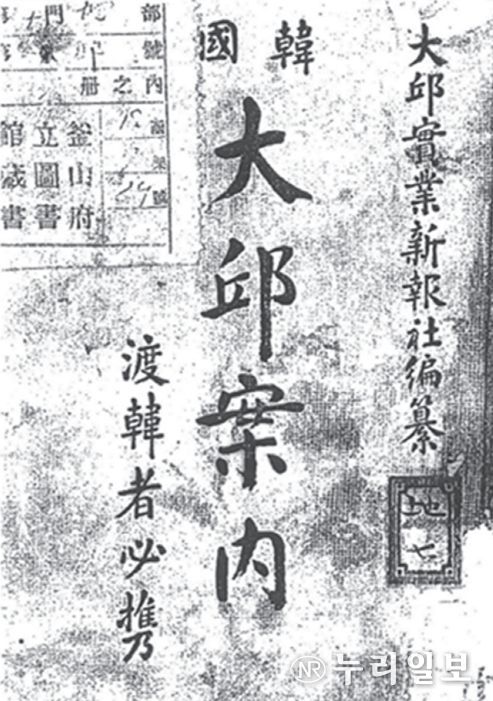 大邱實業新報社編纂
韓國
大邱案内
渡韓者必携
地七
部
門
號
內之册
釜山府
立圖書
館藏書
NR 누리일보